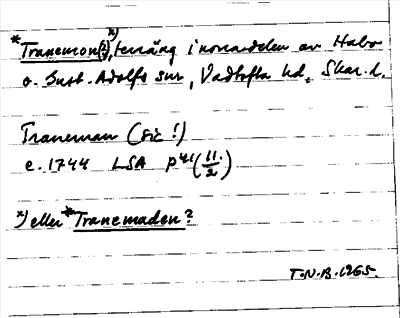 *Tranemon(?)ˣ⁾, terräng i norra delen av Habo
o. Gust. Adolfs snr, Vadtofta hd, Skar. l.
Traneman (sic!)
c. 1744 LSA P41 (11/2)
ˣ⁾ eller *Tranemaden?
T.N.B. 1965.